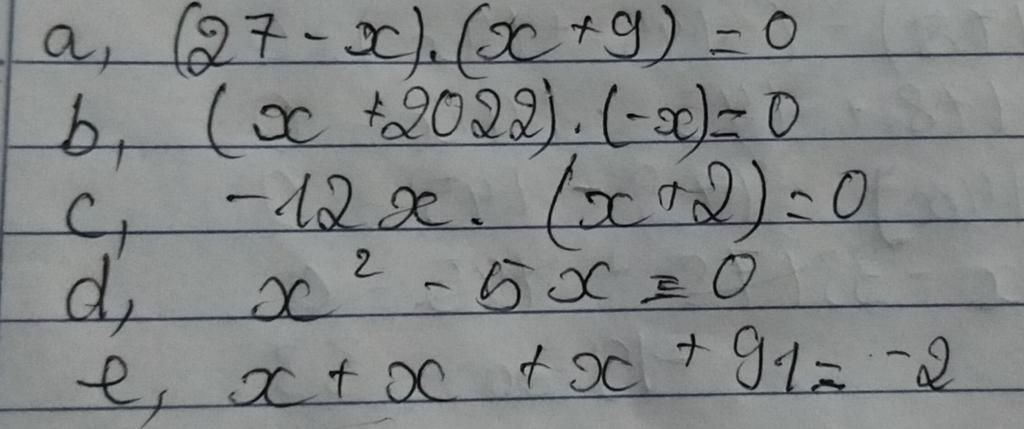 a, (27 - x).(x + 9) = 0
b, (x + 2022).(-x) = 0
c, -12x. (x + 2) = 0
d, x² - 5x = 0
e, x + x + x + 91 = -2